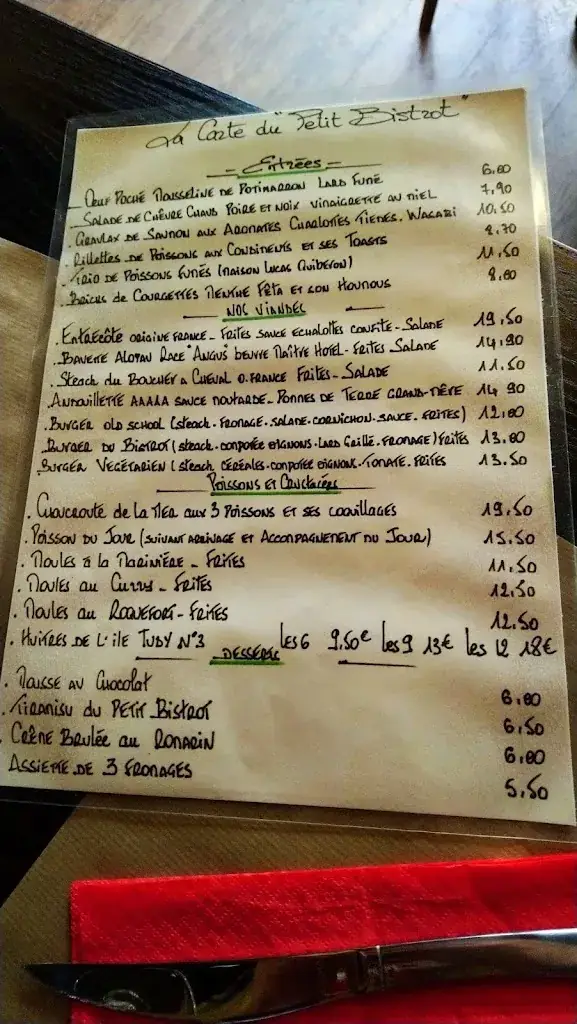 La Carte du "Petit Bistrot"
- Entrées -
. Oeuf Poché Mousseline de Potimarron Lard Fumé 6.80
. Salade de Chèvre Chaud Poire et Noix Vinaigrette au Miel 7,90
. Gravlax de Saumon aux Aromates Charlottes Tiedes. Wasabi 10,50
. Rillettes de Poissons aux Condiments et ses Toasts 8.70
. Trio de Poissons Fumés (Maison Lucas Quiberon) 11,50
. Bricks de Courgettes Menthe Fêta et son Houmous 8.80
Nos Viandes
. Entrecôte origine France - Frites Sauce Echalottes Confite - Salade 19,50
. Bavette Aloyau Race "Angus" beurre Maître Hotel - Frites Salade 14,90
. Steack du Boucher à Cheval O.France Frites - Salade 11.50
. Andouillette AAAAA Sauce Moutarde - Pommes de Terre Grand-Mère 14 90
. Burger old school (Steack - Fromage - Salade - Cornichon - Sauce - Frites) 12,80
. Burger du Bistrot (Steack - Compotée oignons - Lard Grillé - Fromage) Frites 13.80
. Burger Vegetarien (Steack Céréales - Compotée oignons - Tomate - Frites 13.50
Poissons et Crustacées
. Choucroute de la Mer aux 3 Poissons et ses Coquillages 19.50
. Poisson du Jour (suivant arrivage et Accompagnement du Jour) 15.50
. Moules à la Marinière - Frites 11,50
. Moules au Curry - Frites 12,50
. Moules au Roquefort - Frites 12.50
. Huitres de l'ile Tudy N°3 les 6 9.50€ les 9 13€ les 12 18€
Desserts
. Mousse au Chocolat 6,80
. Tiramisu du Petit Bistrot 6,50
. Crème Brulée au Romarin 6,80
. Assiette de 3 Fromages 5,50